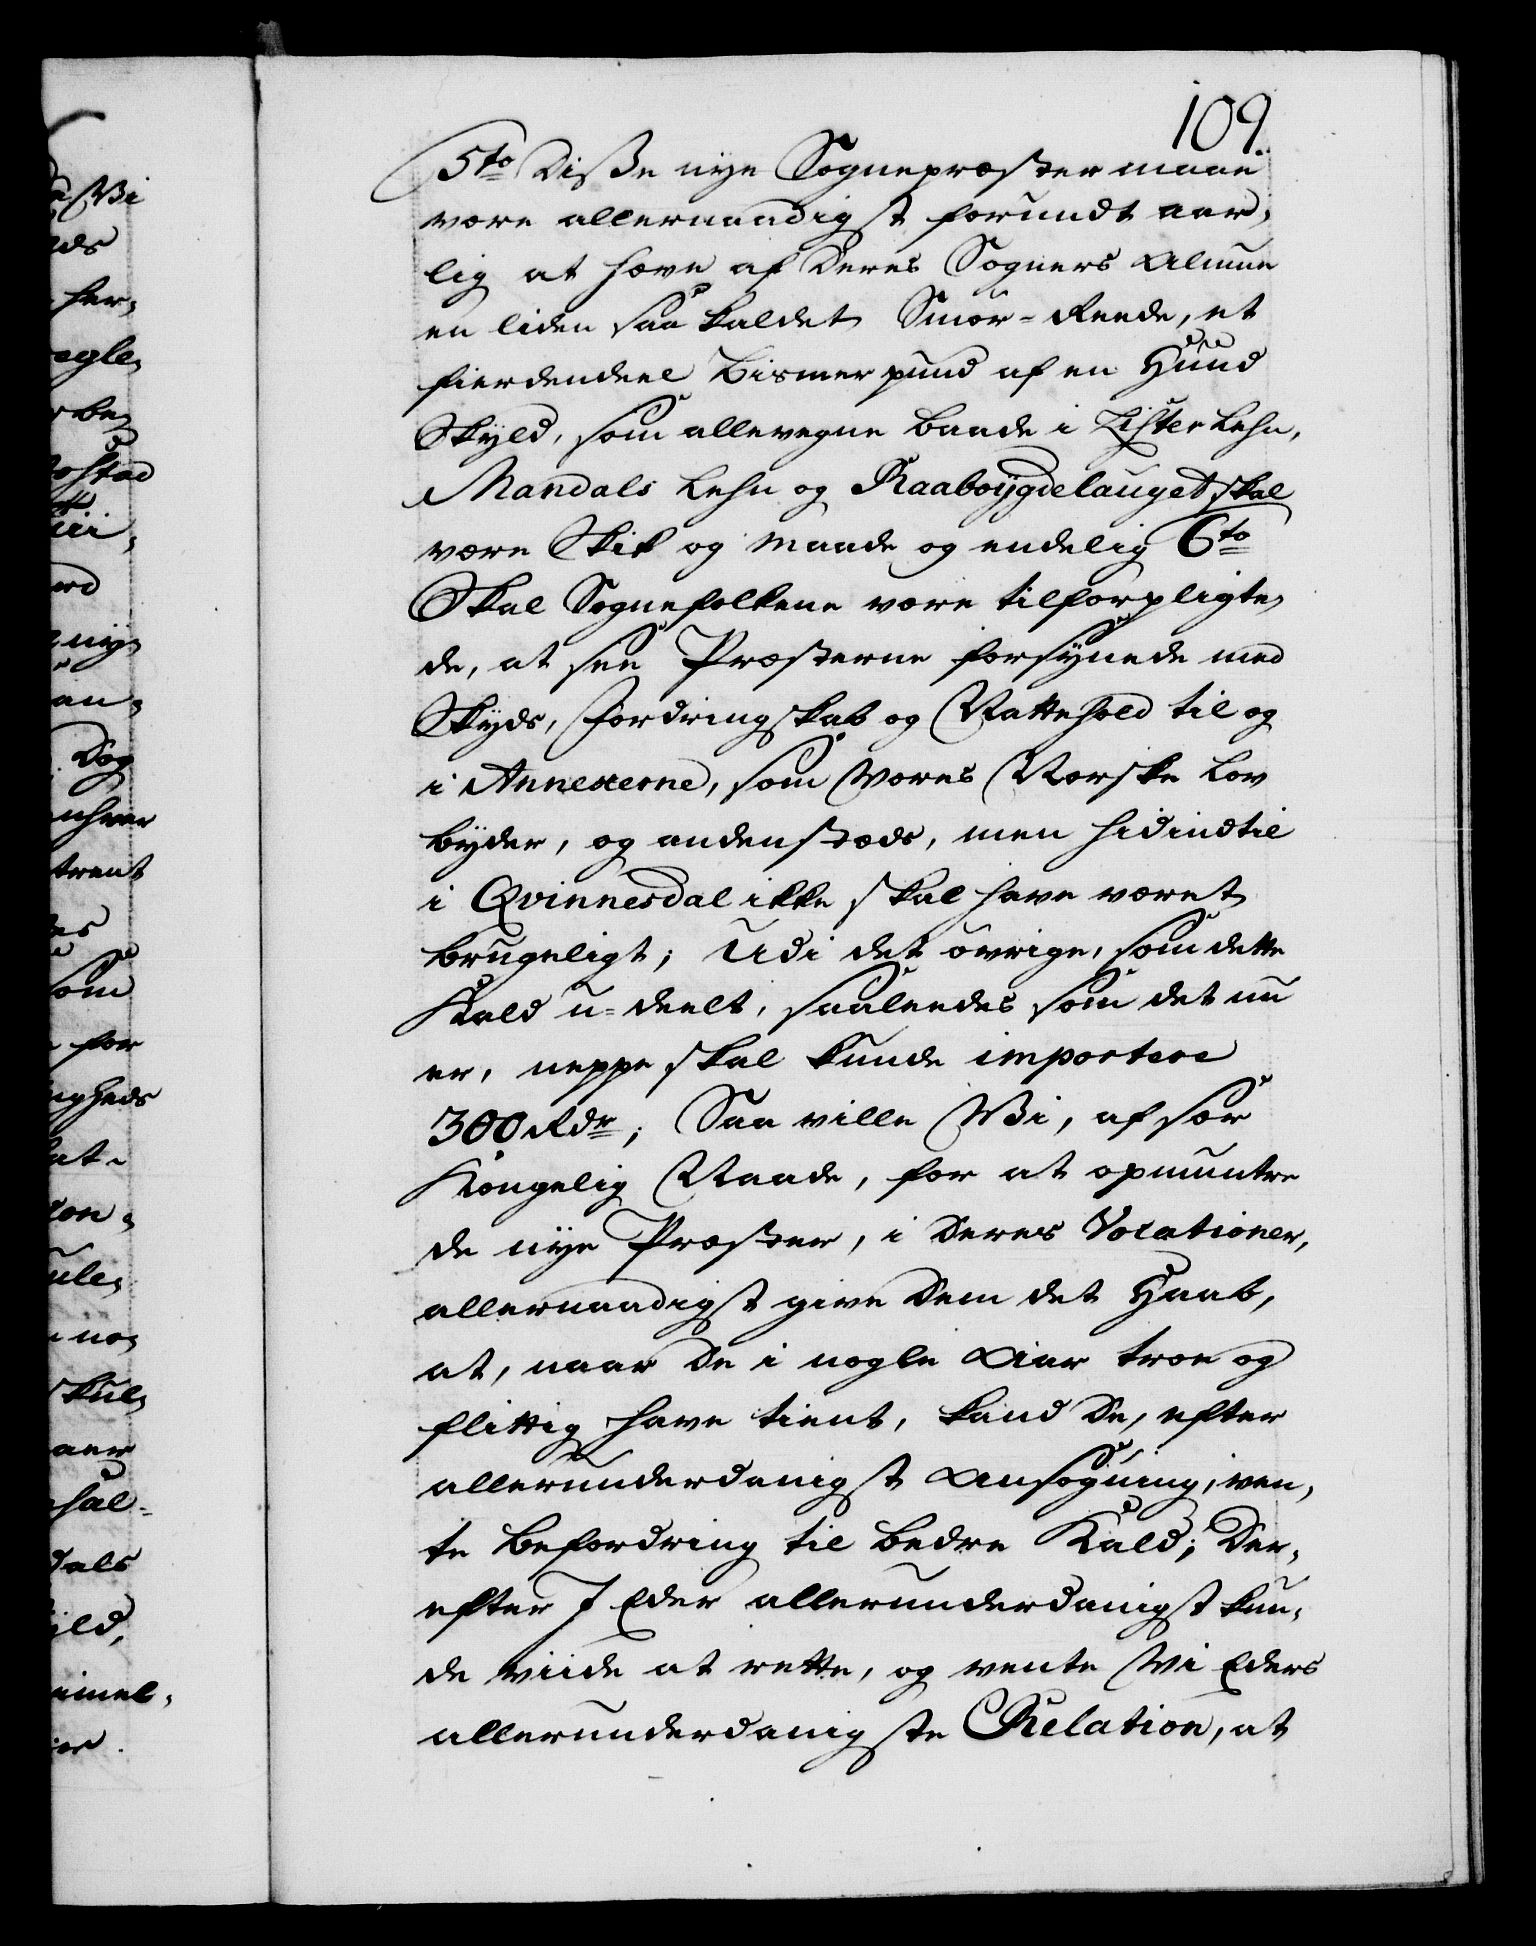 109.
5to Disse nye Sognepræster maae
være allernaadigst forundt aar,
lig at hæve af Deres Sogners Almue
en liden saa kaldet Smør-Reede, et
fierdendeel Bismerpund af en Huud
Skyld, som allevegne baade i Lister Lehn,
Mandals Lehn og Raaboygdelauget skal
være Skik og Maade og endelig 6to
Skal Sognefolkene være tilforpligte,
de, at see Præsterne forsynede med
Skyds, Fordringskab og Nattehold til og
i Annexerne, som Vores Norske Lov
byder, og andenstæds, men hidindtil
i Qvinnesdal ikke skal have været
brugeligt; Udi det øvrige, som dette
Kald u-deelt, saaleedes som det nu
er, neppe skal kunde importere
300 Rdr; Saa ville Wi, af sær
Kongelig Naade, for at opmuntre
de nye Præster, i Deres Vocationer,
allernaadigst give Dem det Haab,
at, naar De i nogle Aar troe og
flittig have tient, kand De, efter
allerunderdanigst Ansøgning, ven,
te Befordring til bedre Kald; Der,
efter I Eder allerunderdanigst kun,
de viide at rette, og vente Wi Eders
allerunderdanigste Relation, at